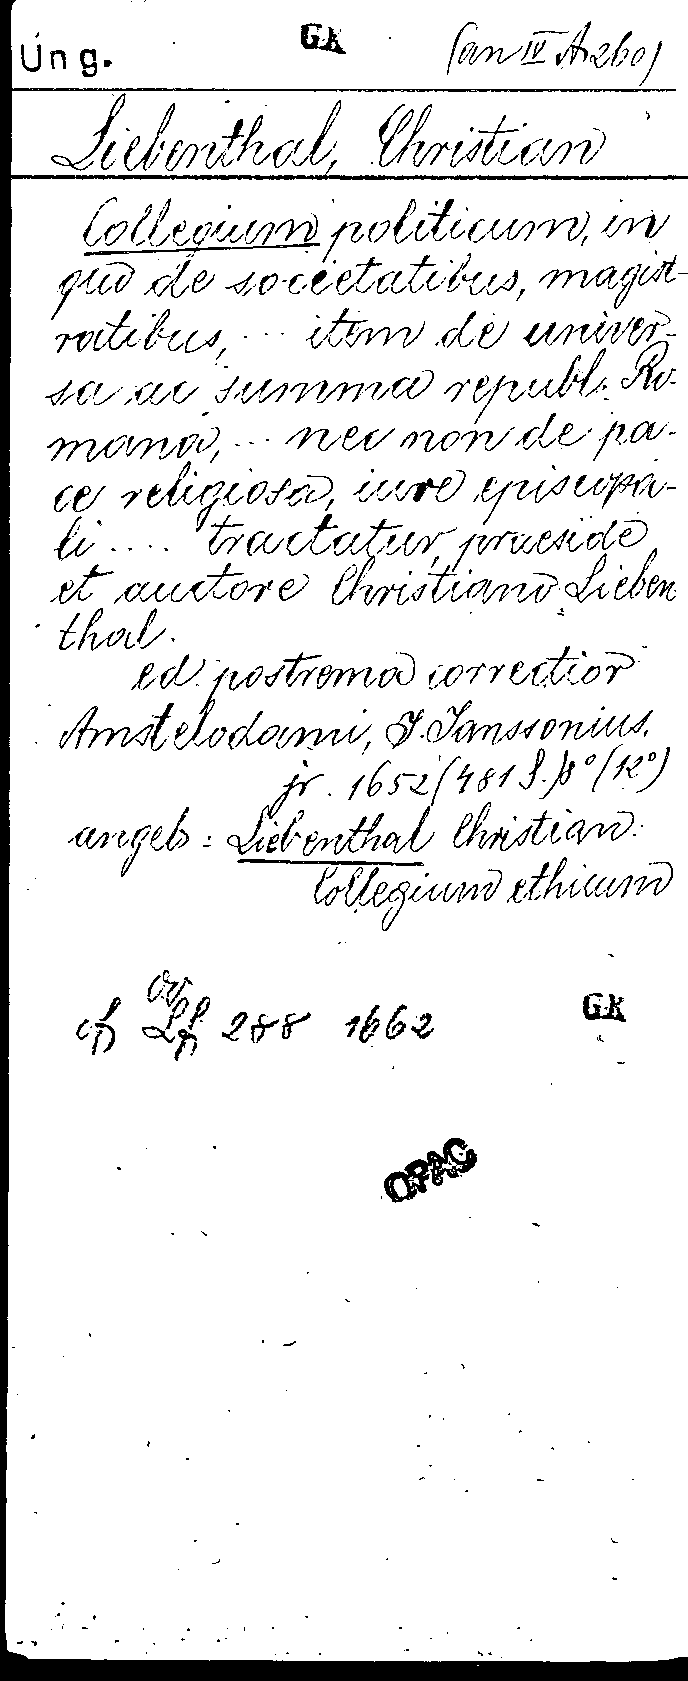 Ung. GK (an IV A 260)
Liebenthal, Christian
Collegium politicum, in
quo de societatibus, magist-
ratibus, ... item de univer-
sa ac summa republ. Ro-
mana, ... nec non de pa-
ce religiosa, iure episcopa-
li .... tractatur, praeside
et auctore Christiano Lieben
thal.
ed. postrema correctior
Amstelodami, J. Janssonius.
jr. 1652 (481 S.) 8° (12°)
angeb: Liebenthal Christian:
Collegium ethicum
cf 288 1662 GK
OPAC